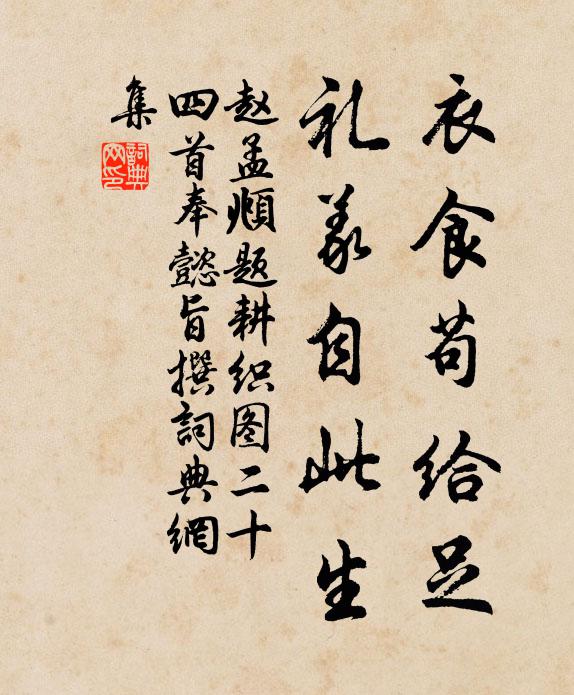 衣食苟给足
礼义自此生
赵孟頫题耕织图二十
四首奉懿旨撰詞典網
集
詞典
网印